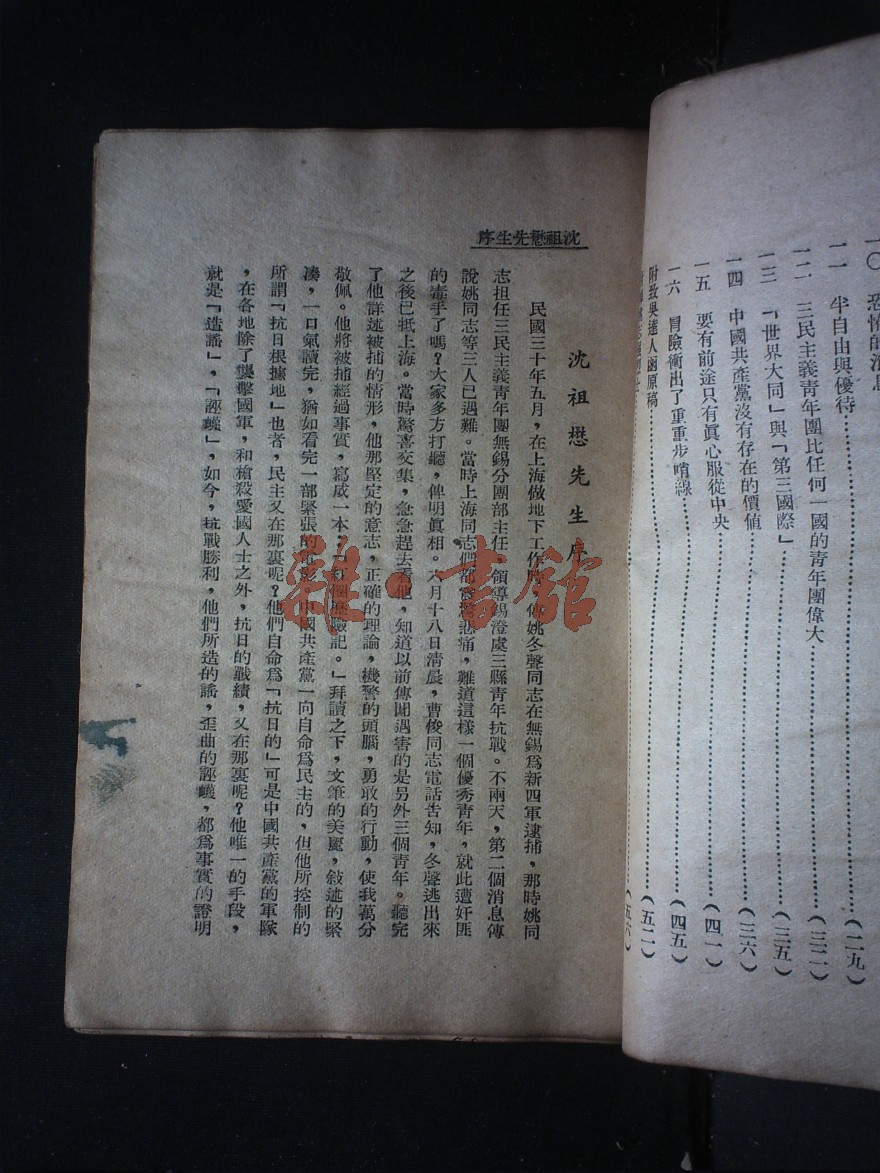 一〇 恐怖的消息
一一 半自由與優待……(二九)
一二 三民主義青年團比任何一國的青年團偉大……(三二)
一三 「世界大同」與「第三國際」……(三五)
一四 中國共產黨沒有存在的價值……(三六)
一五 要有前途只有眞心服從中央……(四一)
一六 冒險衝出了重重步哨線……(四五)
附致吳達人函原稿……(五二)
……(五六)
沈祖懋先生序
沈祖懋先生序
民國三十年五月，在上海做地下工作，傳姚冬聲同志在無錫爲新四軍逮捕，那時姚同
志担任三民主義青年團無錫分團部主任，領導錫澄處三縣青年抗戰。不兩天，第二個消息傳
說姚同志等三人已遇難。當時上海同志們都悲痛，難道這樣一個優秀青年，就此遭奸匪
的毒手了嗎？大家多方打聽，俾明眞相。六月十八日清晨，曹俊同志電話告知，冬聲逃出來
之後已抵上海。當時驚喜交集，急急趕去看他，知道以前傳聞遇害的是另外三個青年。聽完
了他詳述被捕的情形，他那堅定的意志，正確的理論，機警的頭腦，勇敢的行動，使我萬分
敬佩。他將被捕經過事實，寫成一本：「歷險記。」拜讀之下，文筆的美麗，敍述的緊
湊，一口氣讀完，猶如看完一部緊張的電影。中國共產黨一向自命爲民主的，但他所控制的
所謂「抗日根據地」也者，民主又在那裏呢？他們自命爲「抗日的」可是中國共產黨的軍隊
，在各地除了襲擊國軍，和槍殺愛國人士之外，抗日的戰績，又在那裏呢？他唯一的手段，
就是「造謠」，「誣衊」，如今，抗戰勝利，他們所造的謠，歪曲的誣衊，都爲事實的證明
雜·書館